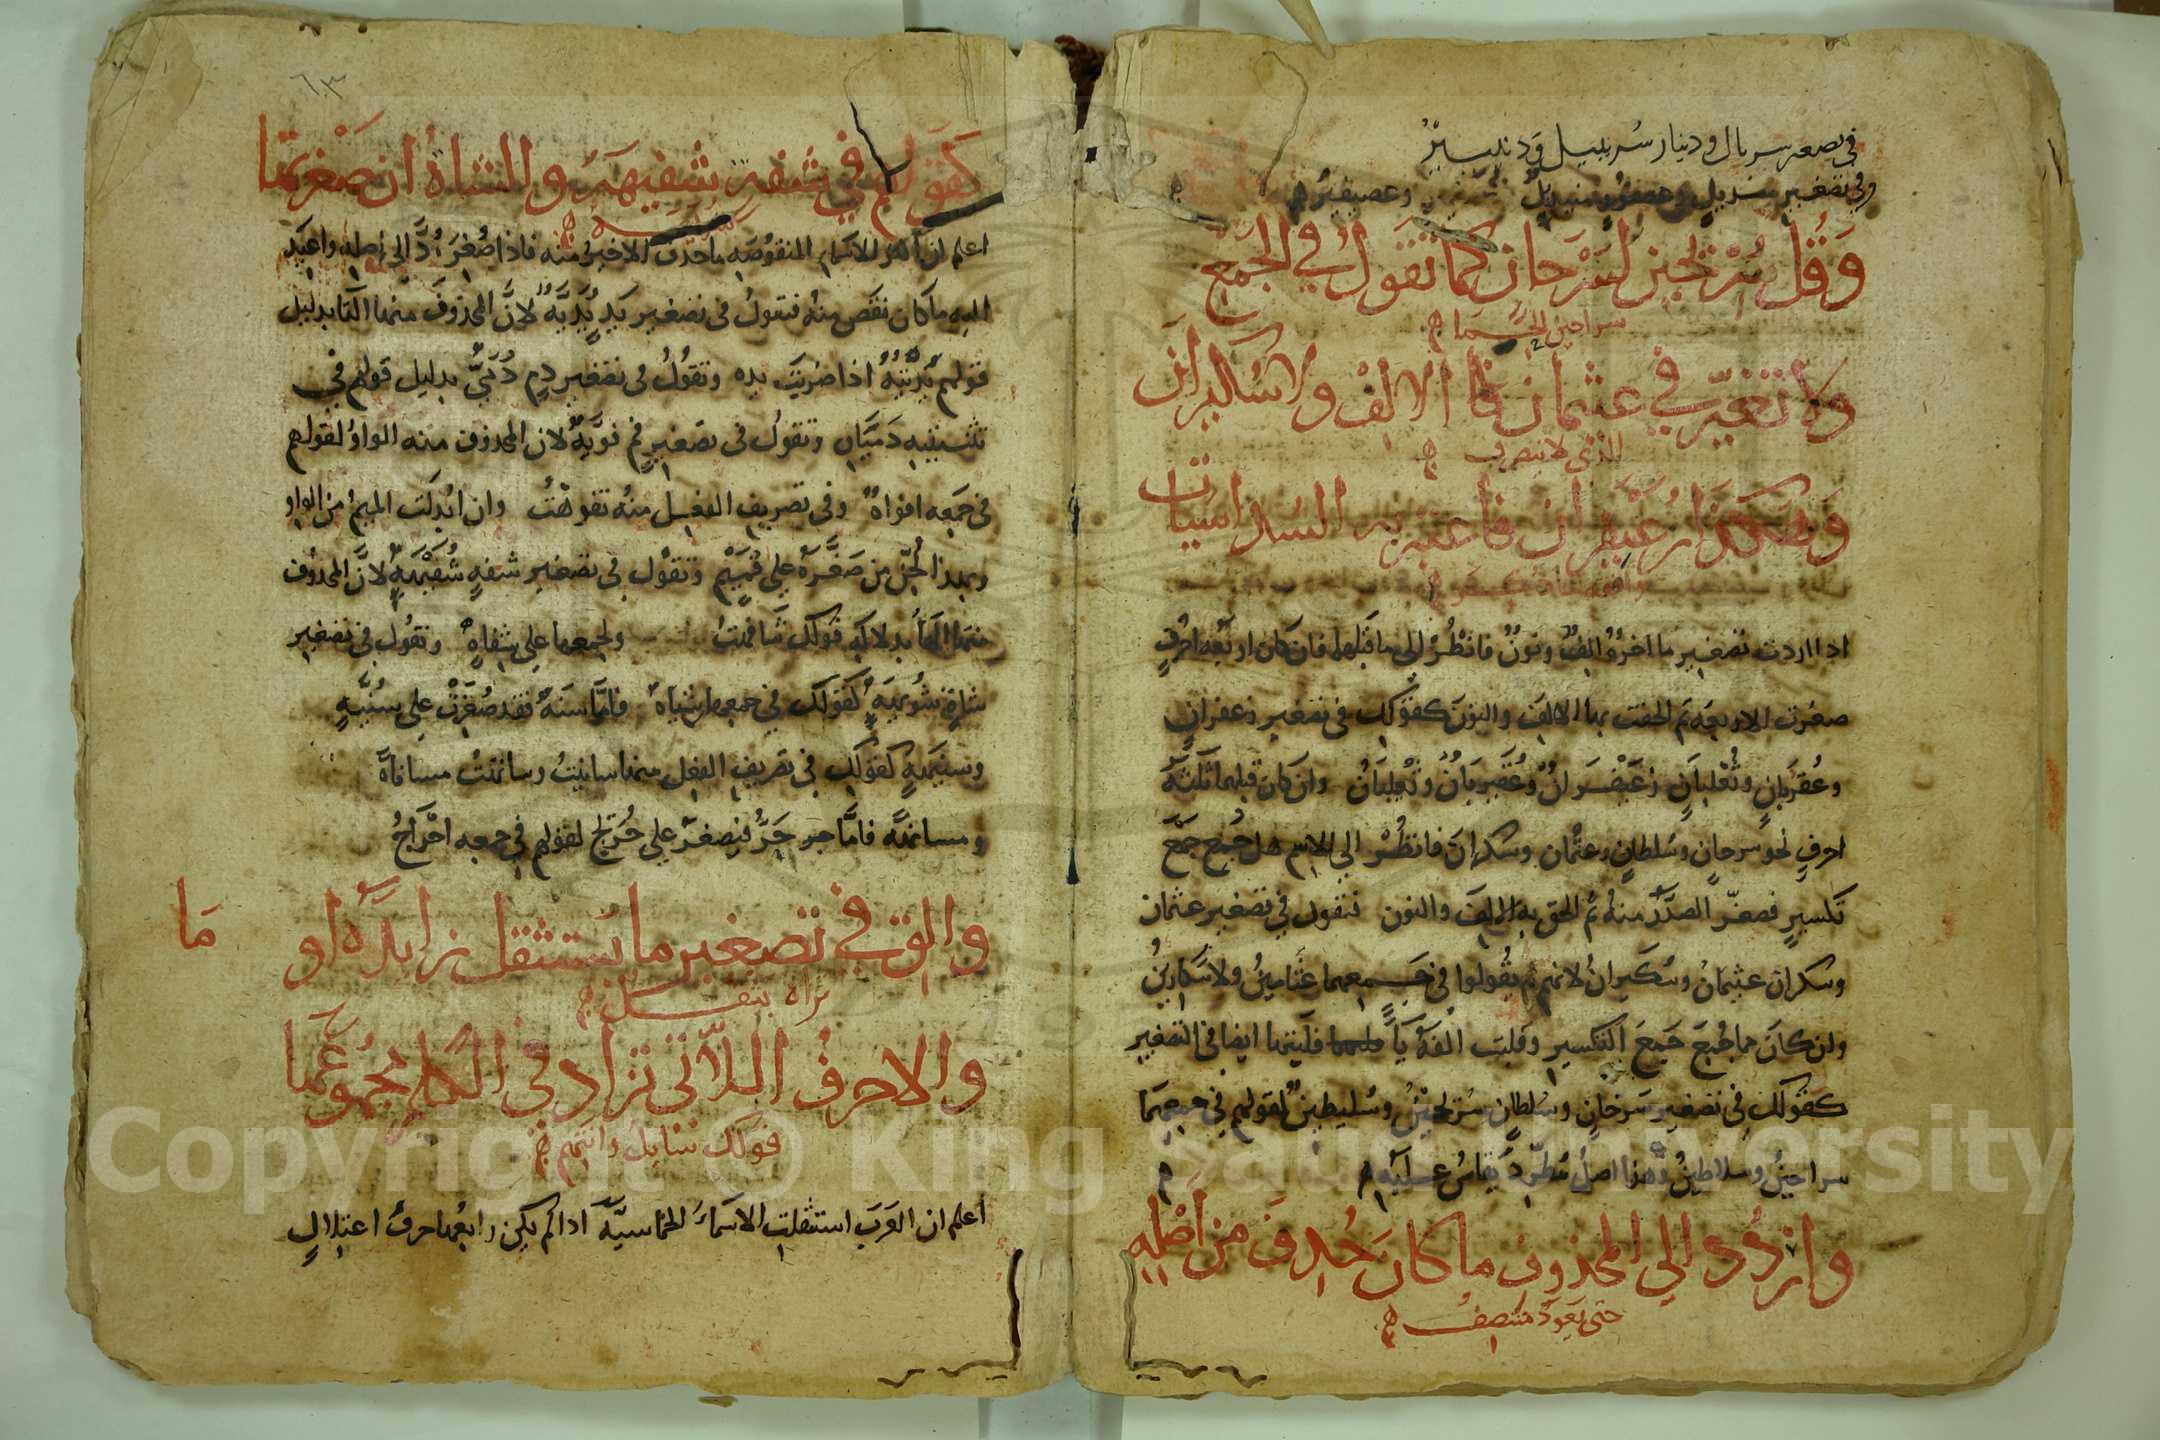 في تصغير سربال ودينار سُريبيل ودنينيرُ
وفي تصغير منديل وعصفور منيديل وعصيفيرُ
وَقُل سُرَيحين لسَرْحان كما تقولُ في الجمعِ
سراحين الحِمى
ولا تغيّر في عثيمان الالفْ ولا سكيران
الذي لا ينصرف
وهكذا زُعَيفران فاعتبر به السداسيات
اذا اردت تصغير ما اخرُهُ الفٌ ونونٌ فانظُرْ الى ما قبلهما فان كان اربعة احرفٍ
صغرت الاربعة ثم الحقت بها الالف والنون كقولك في تصغير زعفرانٍ
وعُقربانٍ وثُعلبانٍ زعيفرانٌ وعُقيربانٌ وثعيلبانٌ وان كان قبلهما ثلثة
احرفٍ نحو سرحانٍ وسُلطانٍ وعثمان وسكران فانظُرْ الى الاسم هل جُمع جمعَ
تكسيرٍ فصغّر الصدر منهُ ثم الحق به الالف والنون فتقول في تصغير عثمان
وسكران عثيمانُ وسُكيرانُ لانهم لم يقولوا في جمعهما عثامينُ ولا سكارينُ
وان كان مما جُمعَ جمعَ التكسيرِ وقلبت الفهُ ياءً قلبتها ايضا في التصغير
كقولك في تصغير سرحانٍ وسُلطانٍ سُريحينٌ وسُليطينٌ لقولهم في جمعهما
سراحينُ وسلاطينُ وهذا اصلٌ مُطَّرِدٌ يُقاسُ عليه
واردُد الى المحذوف ما كان حُذِفَ من اصْلِهِ
حتى يعودَ منتصفْ
٦٣
كقولهم في شفةٍ شُفَيهَة والشاةُ ان صغرتها
اعلم ان الاسماء المنقوصة ما حذف الاخير منه فاذا صُغّرَ رُدَّ الى اصله واعيد
اليه ما كان نقص منهُ فتقولُ في تصغير يدٍ يُدَيَّةٌ لانَّ المحذوفَ منها اليا بدليل
قولهم يَدَيْتُهُ اذا ضربتَ يده وتقُولُ في تصغير دمٍ دُمَيٌّ بدليل قولهم في
تثنيتيه دَمَيَانِ وتقولُ في تصغيرِ فمٍ فويهٌ لان المحذوف منه الواوُ لقولهم
في جمعه افواهٌ وفي تصريفِ الفعل منهُ تفوهْتُ وان ابدلت الميمُ من الواو
وبهذا لُحِّنَ من صَغَّرَهُ على فُمَيْمٍ وتقُول في تصغير شفةٍ شُفَيْهةٌ لانَّ المحذوف
منها الهاءُ بدلالةِ قولك شافهتُ ولجمعها على شِفاهٍ وتقُول في تصغير
شاةٍ شُويهةٌ كقولك في جمعها شياهٌ فامَّا سنةٌ فقد صُغّرتْ على سُنَيَّةٍ
وسنيهةٍ كقولك في تصريفِ الفعل منها سانيتُ وسانهْتُ مساناةً
ومسانهةً فامَّا حرٌّ فيصغّر على حُرَيحٍ لقولهم في جمعه احْراحُ
والقِ في تصغير ما يستثقل زايدَهُ او ما
تراه يثقل
والاحرفُ اللاتي تزاد في الكلم مجموعُها
قولك سايل وانتهم
اعلم ان العربَ استثقلت الاسماءَ الخماسيَّةَ اذا لم يكن رابعُها حرفُ اعتلالٍ